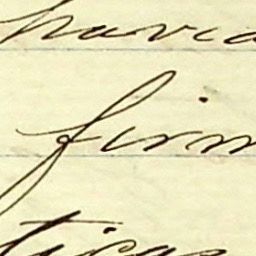 havia
firm
ticas